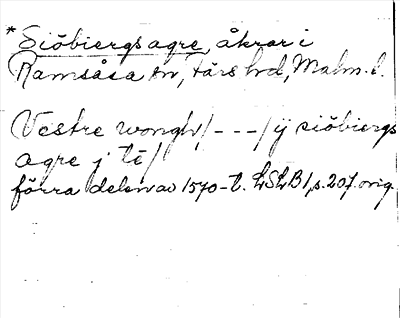 *Siöbiergs agre, åkrar i
Ramsåsa sn, Färs hd, Malm. l.
Vestre wongh/ - - - / ij siöbiergs
agre j tē/
förra delen av 1570-t. LSLB 1, s. 207. orig.